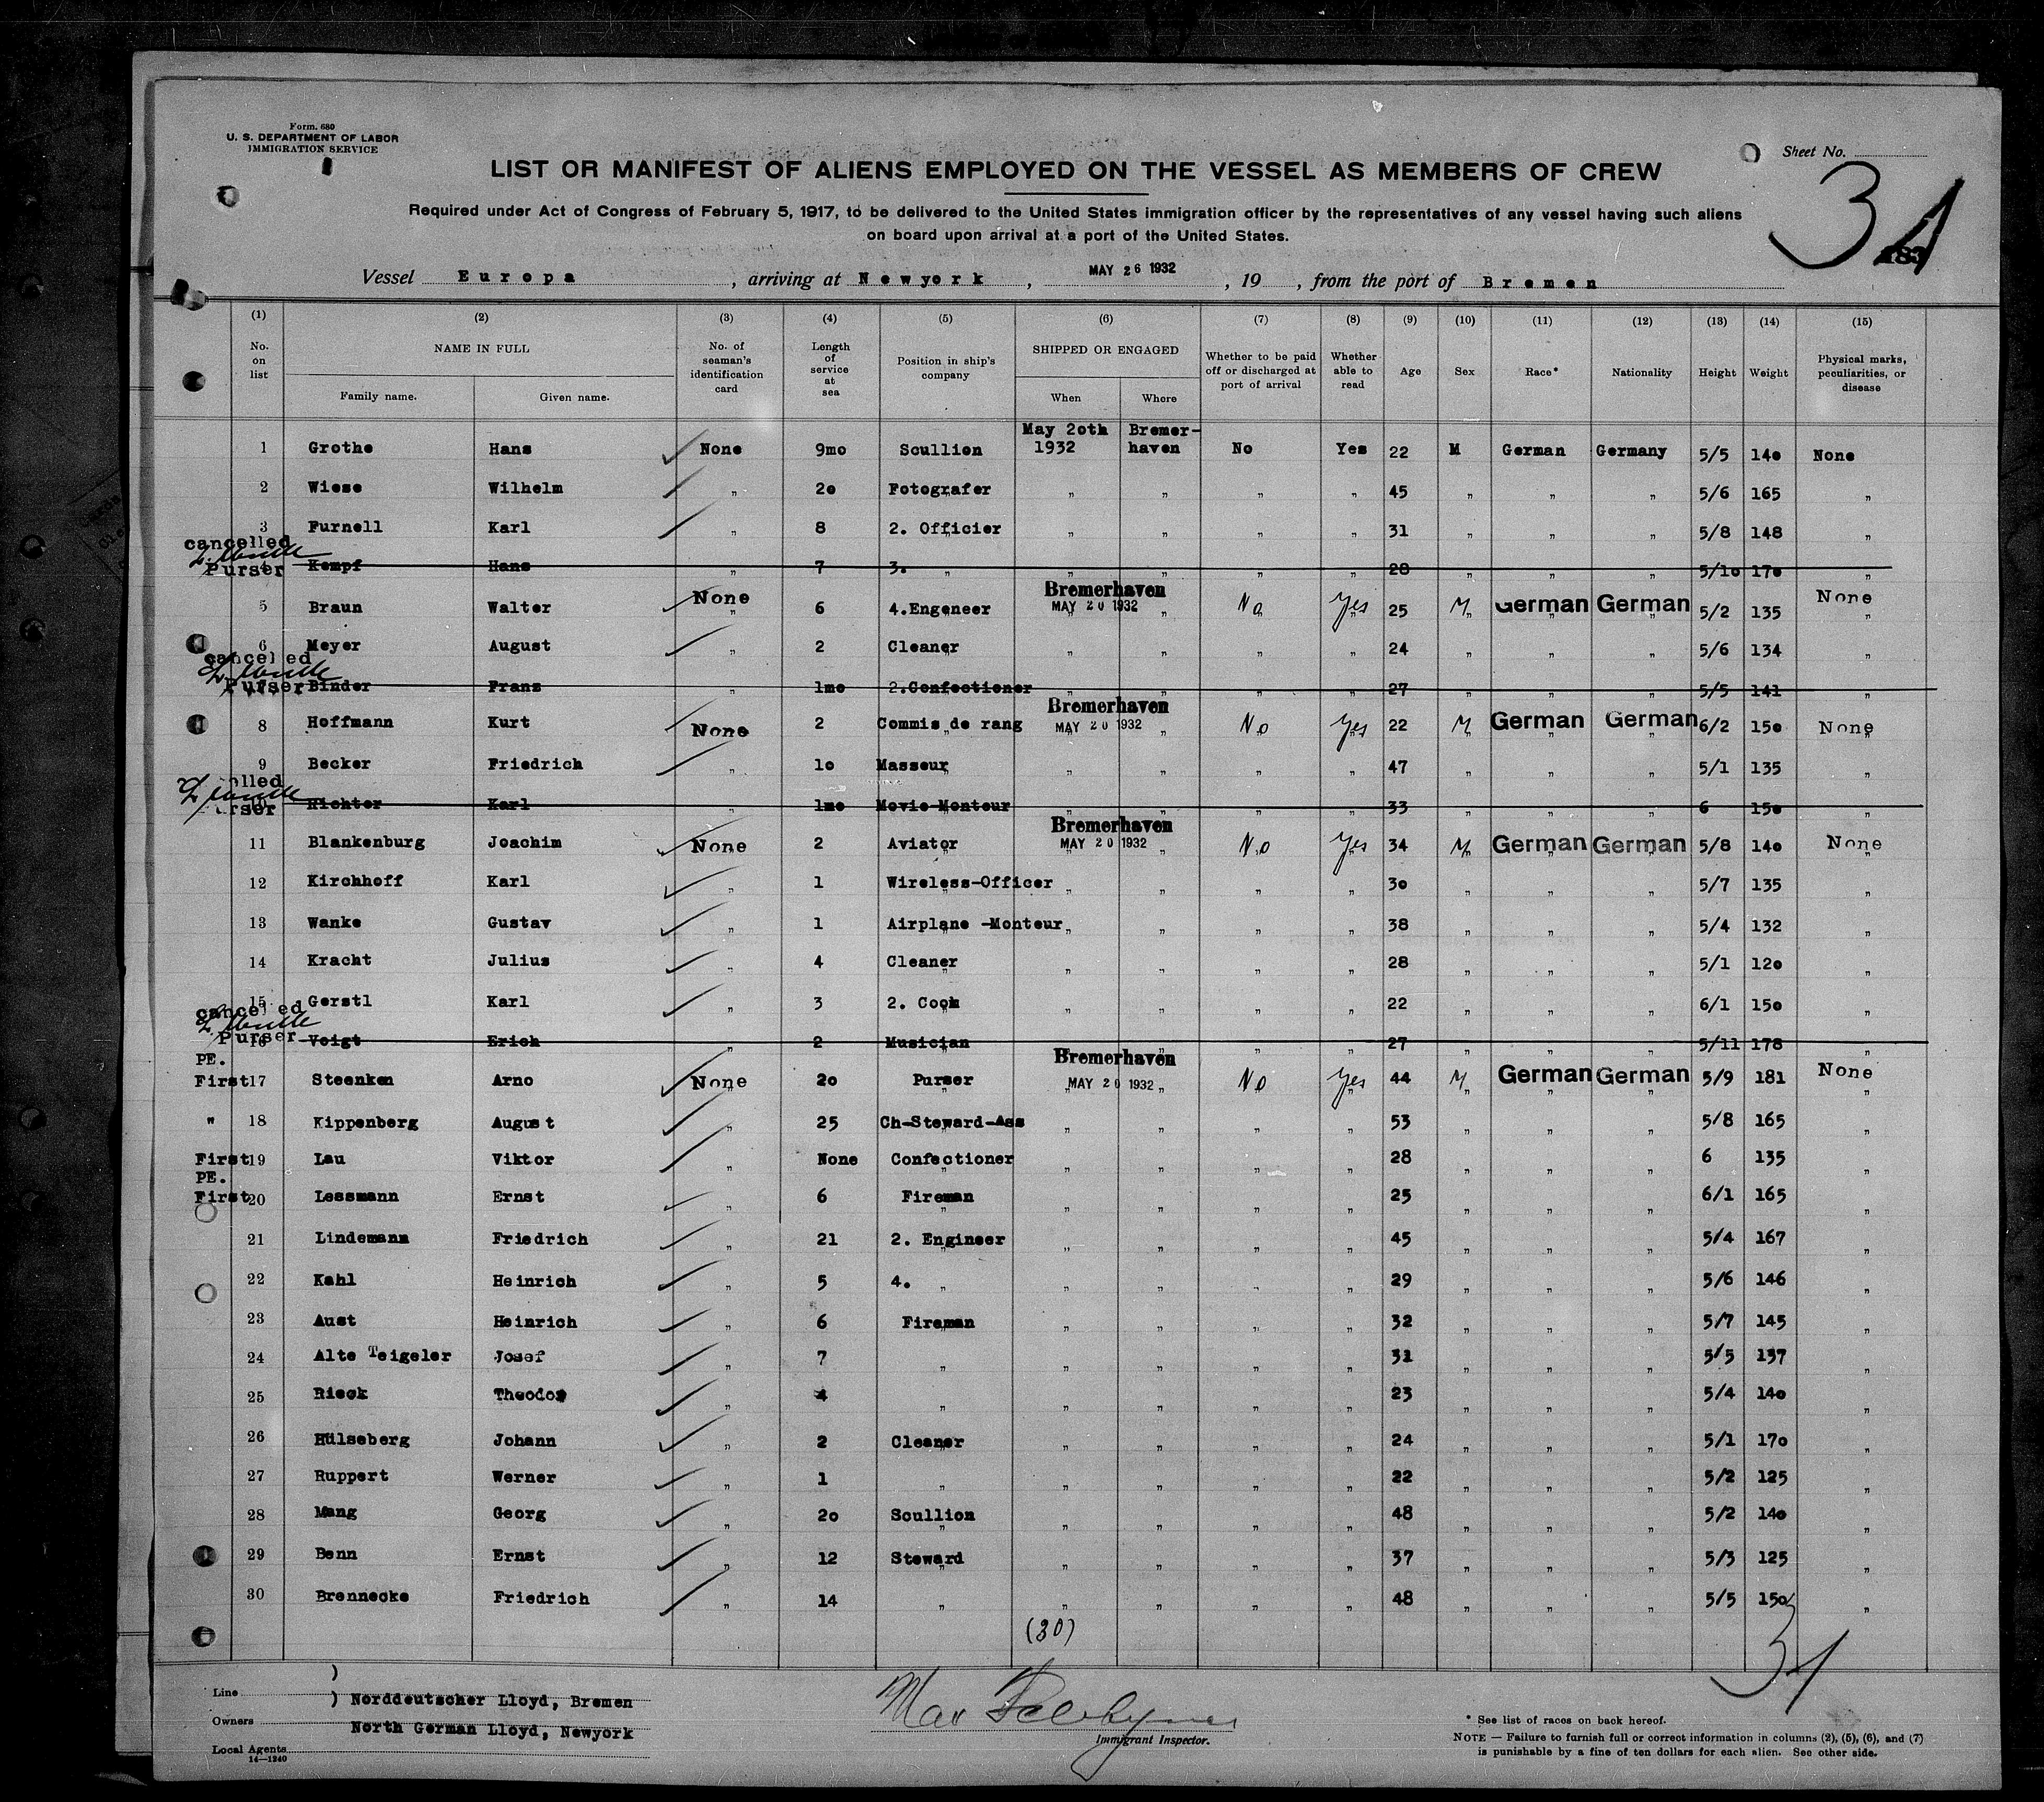 Form. 680
U. S. DEPARTMENT OF LABOR
IMMIGRATION SERVICE
Sheet No.
LIST OR MANIFEST OF ALIENS EMPLOYED ON THE VESSEL AS MEMBERS OF CREW
34
Required under Act of Congress of February 5, 1917, to be delivered to the United States immigration officer by the representatives of any vessel having such aliens
on board upon arrival at a port of the United States.
Vessel Europa, arriving at Newyork, MAY 26 1932, 19 , from the port of Bremen
(1) (2) (3) (4) (5) (6) (7) (8) (9) (10) (11) (12) (13) (14) (15)
No. on list NAME IN FULL Family name. Given name. No. of seaman's identification card Length of service at sea Position in ship's company SHIPPED OR ENGAGED When Where Whether to be paid off or discharged at port of arrival Whether able to read Age Sex Race* Nationality Height Weight Physical marks, peculiarities, or disease
1 Grothe Hans None 9mo Scullion May 2oth 1932 Bremer-haven No Yes 22 M German Germany 5/5 14o None
2 Wiese Wilhelm " 2o Fotografer " " " " 45 " " " 5/6 165 "
3 Furnell Karl " 8 2. Officier " " " " 31 " " " 5/8 148 "
cancelled
Purser
4 Kempf Hans " 7 3. " " " " " 28 " " " 5/1o 17o "
5 Braun Walter None 6 4.Engeneer Bremerhaven MAY 20 1932 No Yes 25 M German German 5/2 135 None
6 Meyer August " 2 Cleaner " " " " 24 " " " 5/6 134 "
cancelled
Purser
Binder Franz " 1mo 2.Confectioner " " " " 27 " " " 5/5 141 "
8 Hoffmann Kurt None 2 Commis de rang Bremerhaven MAY 20 1932 No Yes 22 M German German 6/2 15o None
9 Becker Friedrich " 1o Masseur " " " " 47 " " " 5/1 135 "
10 Richter Karl " 1mo Movie-Monteur " " " " 33 " " " 6 15o "
11 Blankenburg Joachim None 2 Aviator Bremerhaven MAY 20 1932 No Yes 34 M German German 5/8 14o None
12 Kirchhoff Karl " 1 Wireless-Officer " " " " 3o " " " 5/7 135 "
13 Wanke Gustav " 1 Airplane -Monteur " " " " 38 " " " 5/4 132 "
14 Kracht Julius " 4 Cleaner " " " " 28 " " " 5/1 12o "
15 Gerstl Karl " 3 2. Cook " " " " 22 " " " 6/1 15o "
cancelled
Purser
16 Voigt Erich " 2 Musician " " " " 27 " " " 5/11 178 "
PE.
First 17 Steenken Arno None 2o Purser Bremerhaven MAY 20 1932 No Yes 44 M German German 5/9 181 None
" 18 Kippenberg August " 25 Ch-Steward-Ass " " " " 53 " " " 5/8 165 "
First 19 Lau Viktor " None Confectioner " " " " 28 " " " 6 135 "
PE.
First 20 Lessmann Ernst " 6 Fireman " " " " 25 " " " 6/1 165 "
21 Lindemann Friedrich " 21 2. Engineer " " " " 45 " " " 5/4 167 "
22 Kahl Heinrich " 5 4. " " " " " 29 " " " 5/6 146 "
23 Aust Heinrich " 6 Fireman " " " " 32 " " " 5/7 145 "
24 Alte Teigeler Josef " 7 " " " " " 31 " " " 5/5 137 "
25 Rieck Theodor " 4 " " " " " 23 " " " 5/4 14o "
26 Hülseberg Johann " 2 Cleaner " " " " 24 " " " 5/1 17o "
27 Ruppert Werner " 1 " " " " " 22 " " " 5/2 125 "
28 Mang Georg " 2o Scullion " " " " 48 " " " 5/2 14o "
29 Benn Ernst " 12 Steward " " " " 37 " " " 5/3 125 "
30 Brennecke Friedrich " 14 " " " " " 48 " " " 5/5 15o "
(30)
34
Line ) Norddeutscher Lloyd, Bremen
Owners North German Lloyd, Newyork
Local Agents
14—1240
Max
Immigrant Inspector.
* See list of races on back hereof.
NOTE — Failure to furnish full or correct information in columns (2), (5), (6), and (7)
is punishable by a fine of ten dollars for each alien. See other side.